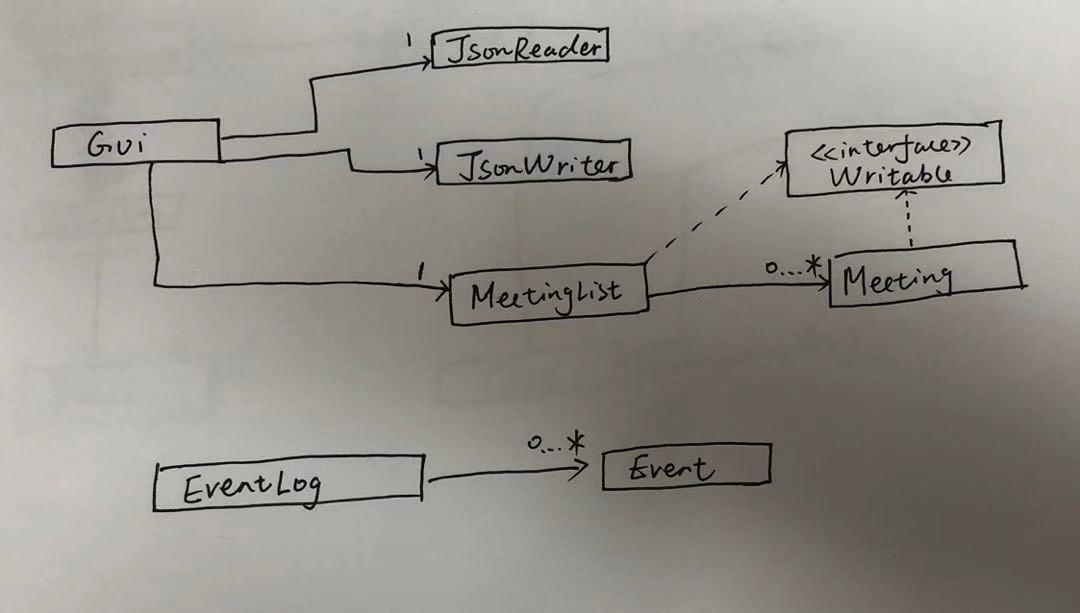 1
JsonReader
Gui
1
JsonWriter
<<interface>>
Writable
1
MeetingList
0...*
Meeting
0...*
EventLog
Event